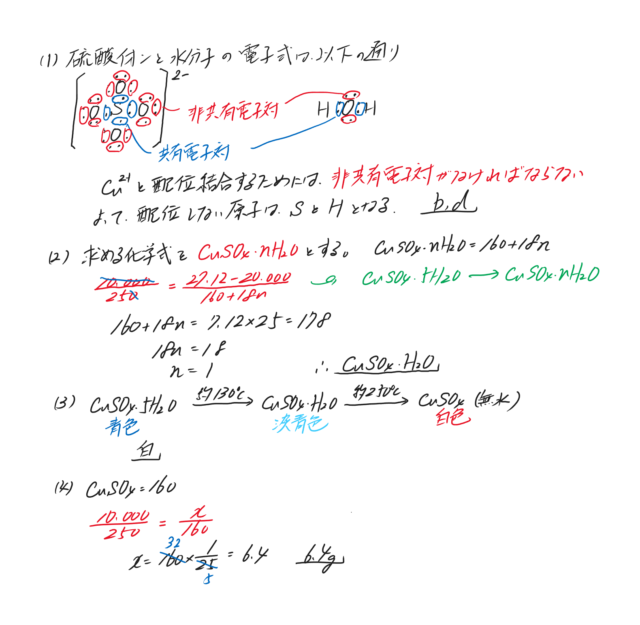 (1) 硫酸イオンと水分子の電子式は、以下の通り
2-
O
O S O
O
非共有電子対
H O H
共有電子対
Cu²⁺と配位結合するためには、非共有電子対がなければならない
よって、配位しない原子は、SとHとなる。 b,d
(2) 求める化学式をCuSO₄・nH₂Oとする。 CuSO₄・nH₂O=160+18n
10.000/250 = 27.12-20.000/160+18n CuSO₄・5H₂O → CuSO₄・nH₂O
160+18n = 7.12×25 = 178
18n = 18
n = 1 ∴ CuSO₄・H₂O
(3) CuSO₄・5H₂O 約130℃→ CuSO₄・H₂O 約250℃→ CuSO₄(無水)
青色 淡青色 白色
白
(4) CuSO₄=160
10.000/250 = x/160
x = 160×1/25 = 6.4 6.4g
32
5